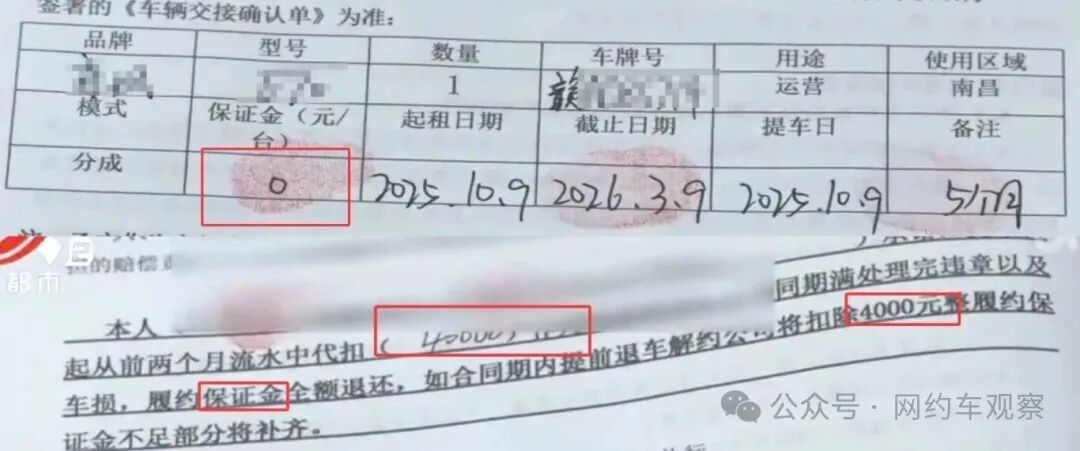 签署的《车辆交接确认单》为准：
品牌 型号 数量 车牌号 用途 使用区域
1 运营 南昌
模式 保证金（元/台） 起租日期 截止日期 提车日 备注
分成 0 2025.10.9 2026.3.9 2025.10.9 5个月
担的赔偿
都市
同期满处理完违章以及
本人
起从前两个月流水中代扣（ 将扣除4000元整履约保
车损，履约保证金全额退还，如合同期内提前退车解约公司
证金不足部分将补齐。
公众号 · 网约车观察